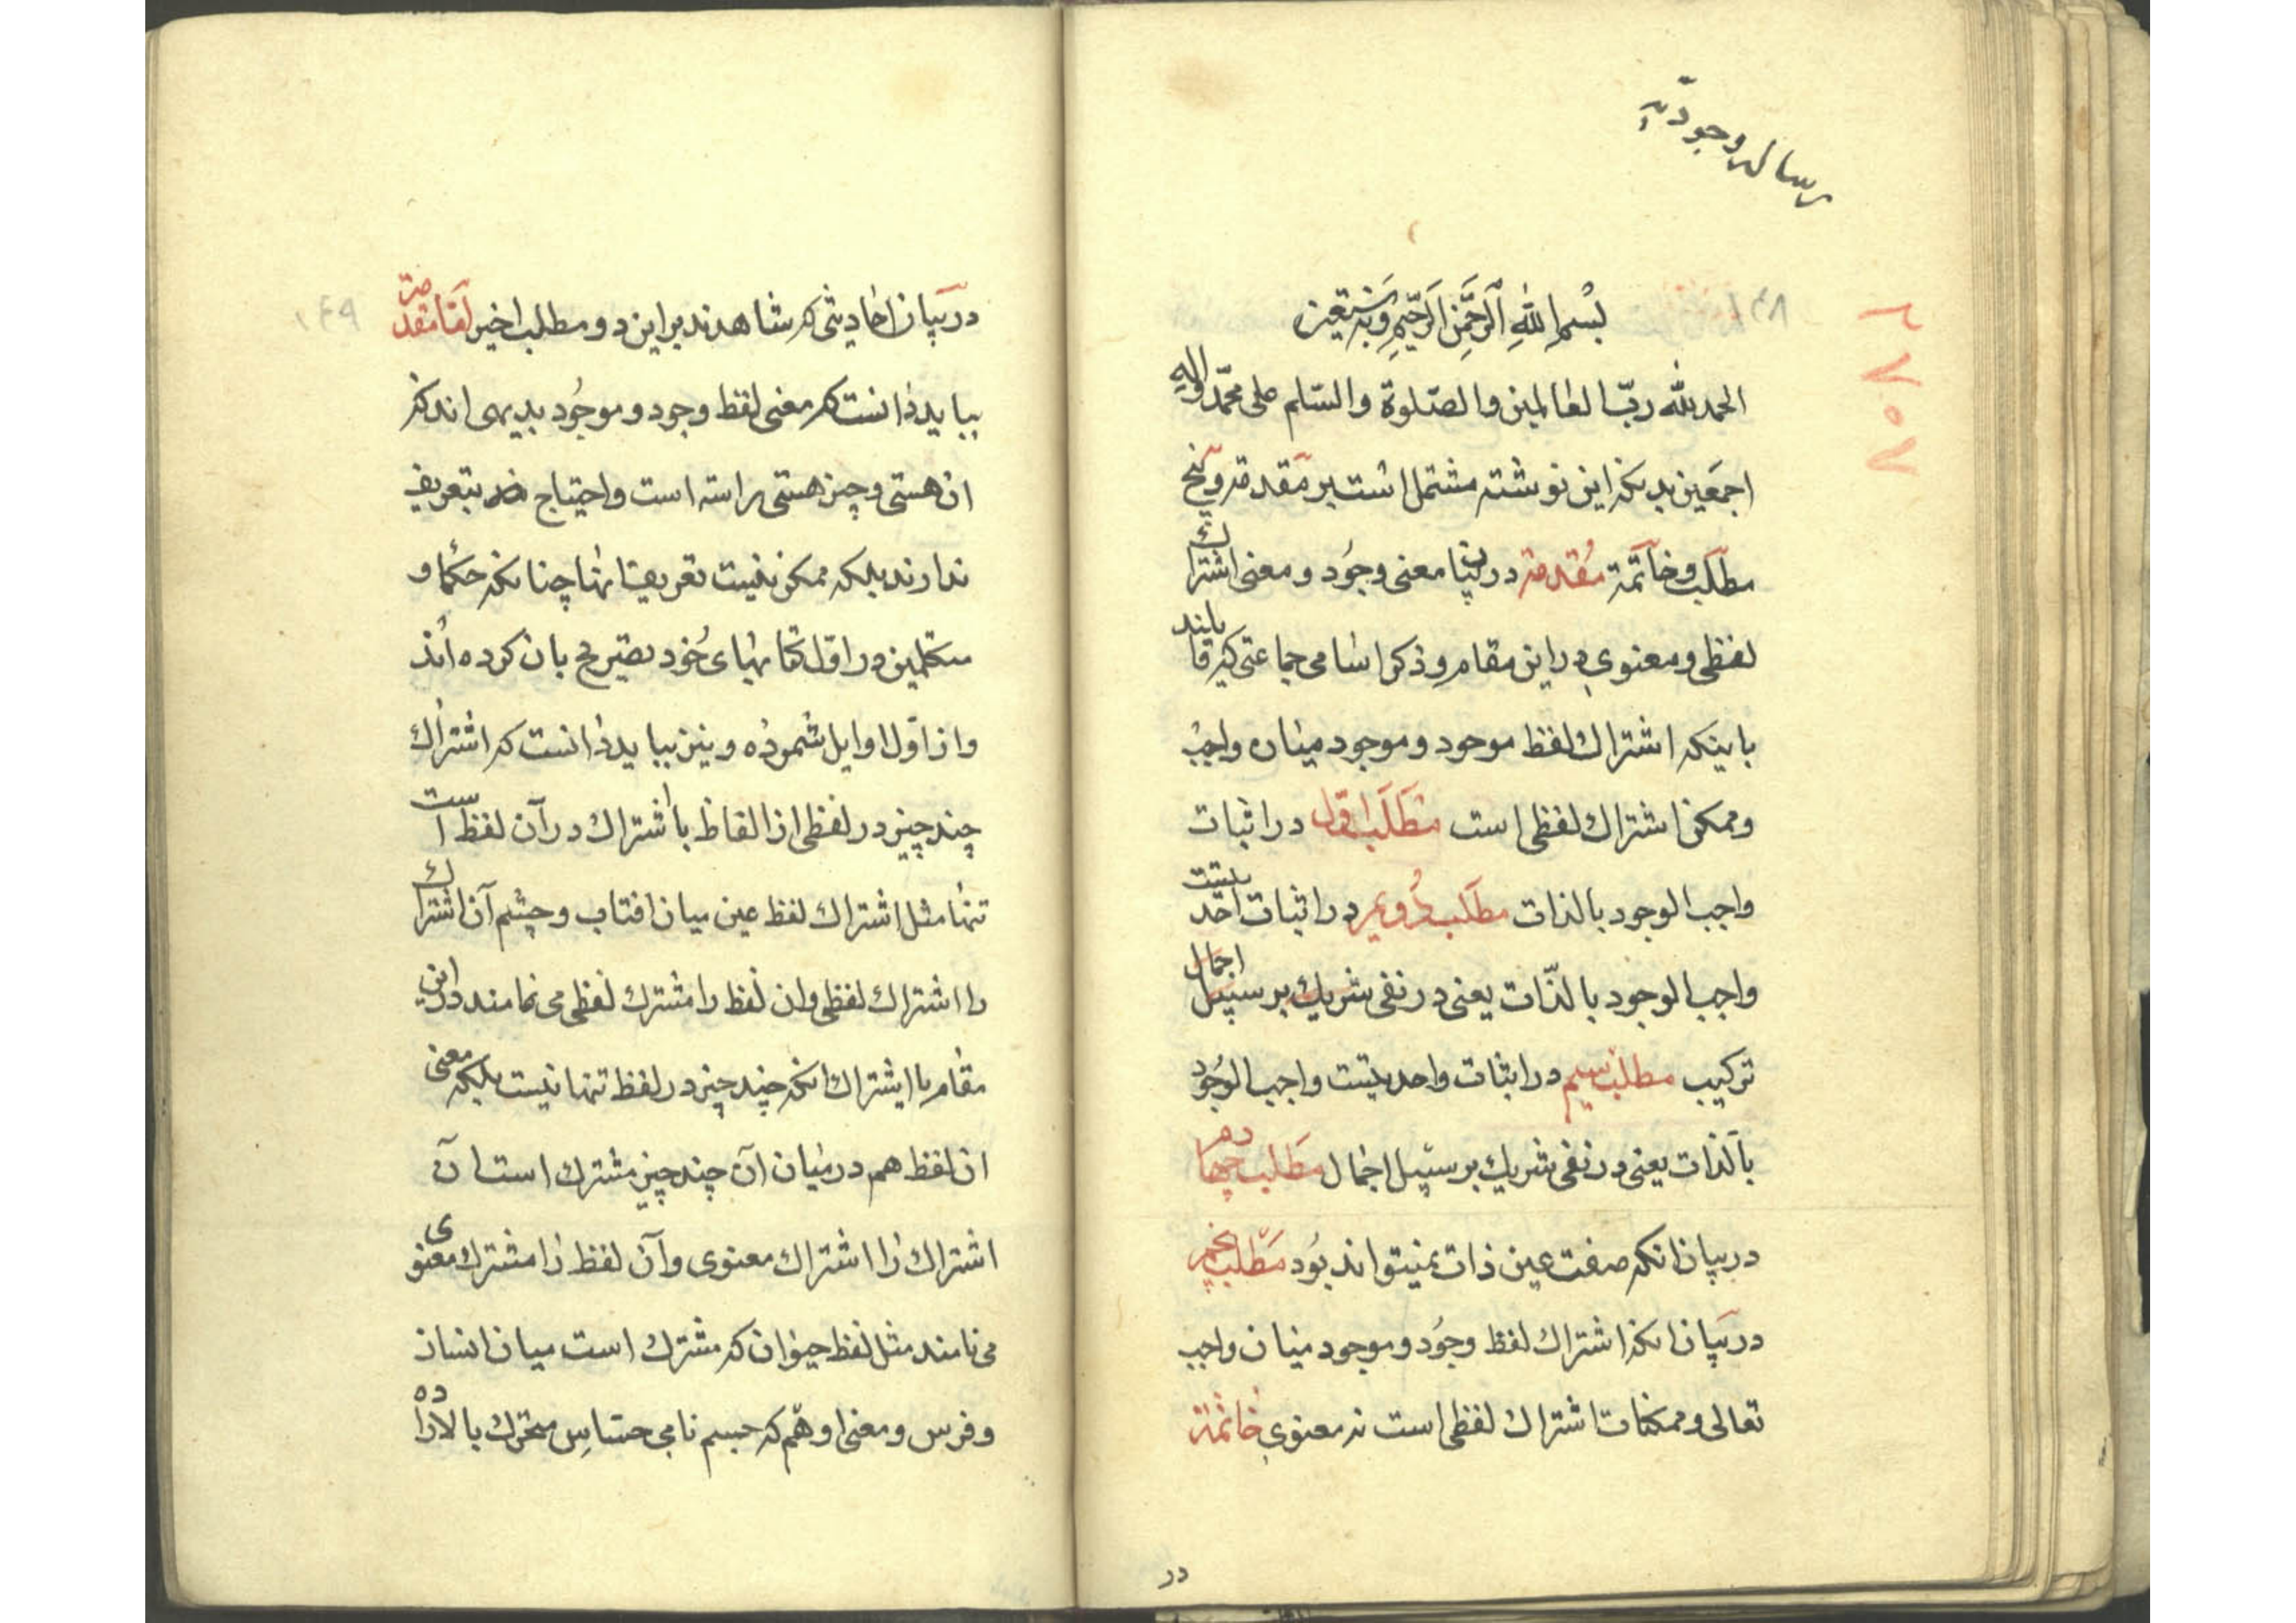 رساله وجودیّه
۲۷۵۷
۱۴۸
بسم الله الرحمن الرحیم وبه نستعین
الحمد لله ربّ العالمین والصّلوة والسّلم علی محمّد واله
اجمعین بدنکه این نوشته مشتمل است بر مقدمه و پنج
مطلب و خاتمة مقدمه در بیان معنی وجود و معنی اشتراک
لفظی و معنوی در این مقام و ذکر اسامی جماعتی که قایلند
باینکه اشتراک لفظ موحود و موجود میان واجب
و ممکن اشتراک لفظی است مطلب اول در اثبات
واجب الوجود بالذات مطلب دویم در اثبات احدیت
واجب الوجود بالذّات یعنی در نفی شریک بر سبیل اجمال
ترکیب مطلب سیم در اثبات واحدیت واجب الوجود
بالذات یعنی در نفی شریک بر سبیل اجمال مطلب چهاردهم
در بیان انکه صفت عین ذات نمیتواند بود مطلب پنجم
در بیان انکه اشتراک لفظ وجود و موجود میان واجب
تعالی و ممکنات اشتراک لفظی است نه معنوی خاتمة
در
۱۴۹
در بیان احادیثی که شاهدند بر این دو مطلب اخیر امّا مقدمه
بباید دانست که معنی لفظ وجود و موجود بدیهی اند که
ان هستی و چیز هستی راسته است و احتیاج بتعریف
ندارند بلکه ممکن نیست تعریف انها چنانکه حکما و
متکلمین در اول کتابهای خود تصریح بان کرده اند
و از اوّل اوایل شمرده و نیز بباید دانست که اشتراک
چند چیز در لفظی از الفاظ با اشتراک در آن لفظ است
تنها مثل اشتراک لفظ عین میان افتاب و چشم آن اشتراک
را اشتراک لفظی وان لفظ را مشترک لفظی می نمامند در این
مقام یا ایشتراک انکه چند چیز در لفظ تنها نیست بلکه معنی
ان لفظ هم در میان آن چند چیز مشترک است آن
اشتراک را اشتراک معنوی و آن لفظ را مشترک معنوی
می نامند مثل لفظ حیوان که مشترک است میان انسان
و فرس و معنی او هم که جسم نامی حسّاس متحرک بالاراده